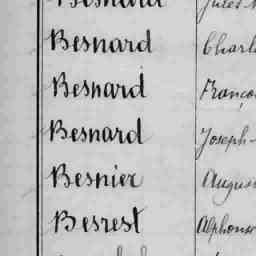 Besnard Jules
Besnard Charl
Besnard Franço
Besnard Joseph-
Besnier Augus
Besrest Alphons